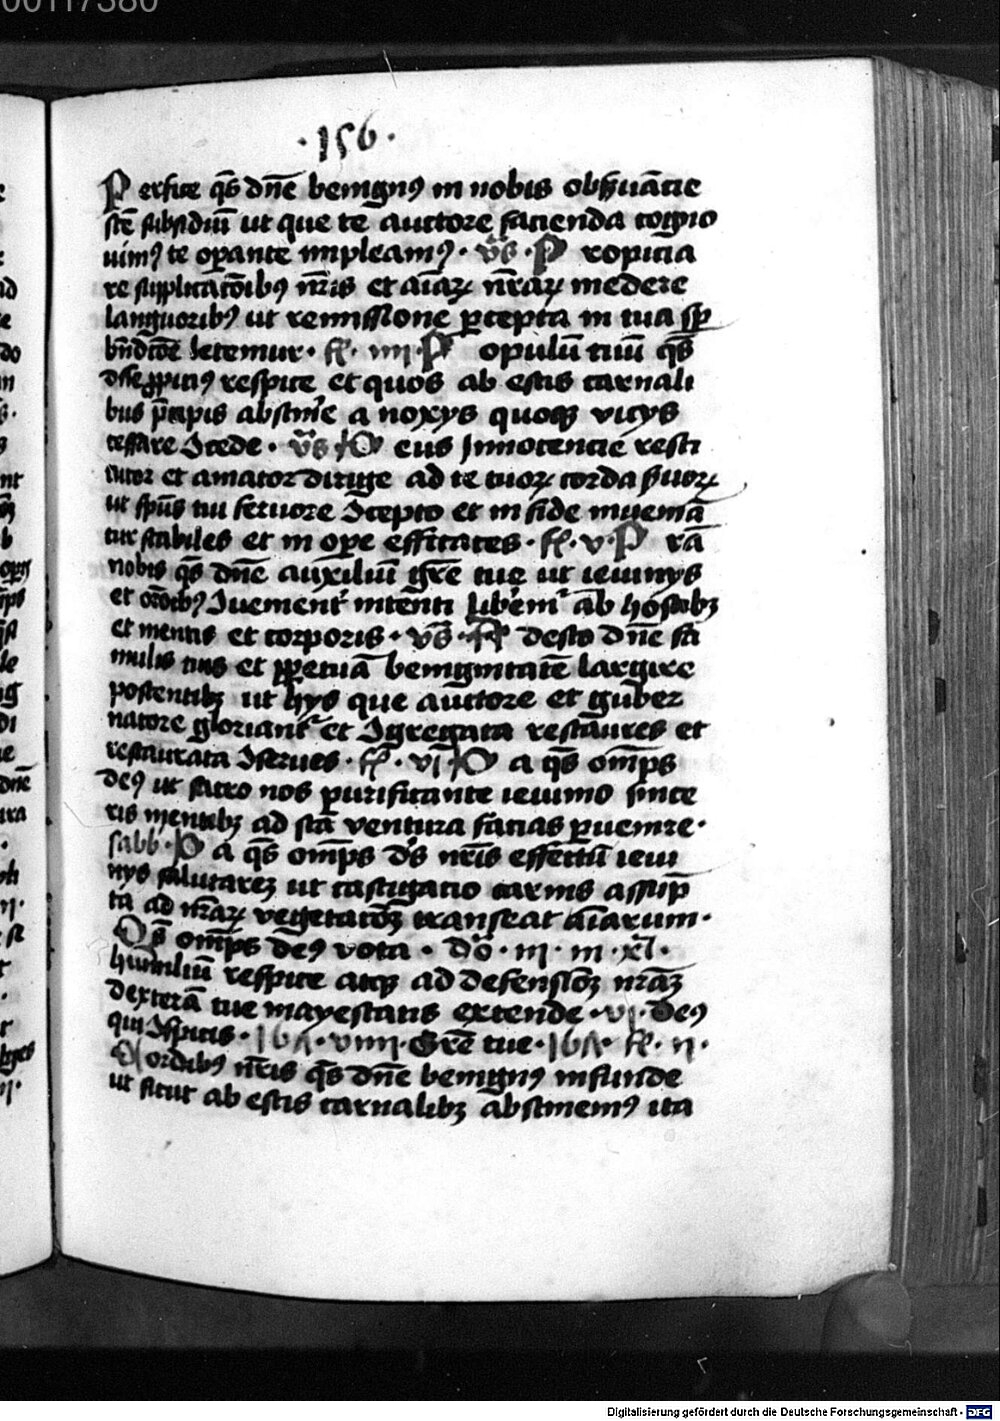 00117380
·156·
Perfice qs̄ dn̄e benignꝰ in nobis obẞuācie
scē subsidiū ut que te auctore facienda cogno
uimꝰ te oꝑante impleamꝰ· v̄s· Propicia
re supplicacōibꝰ nr̄is et aīaꝝ nr̄aꝝ medere
languoribꝰ ut remissione ꝑcepta in tua sꝑ
bn̄dcōe letemur· fꝭ· iiii· Populū tuū qs̄
dn̄e ꝓpiciꝰ respice et quos ab escis carnali
bus p̄cipis abstīe a noxys quoqꝫ vicys
cessare ↄcede· v̄s· Deus Innocencie resti
tutor et amator dirige ad te tuoꝝ corda ẞuoꝝ
ut spūs tui feruore ↄcepto et in fide inueniā
tur stabiles et in oꝑe efficaces· fꝭ· v· Prā
nobis qs̄ dn̄e auxiliū grē tue ut ieiunys
et orōibꝰ ↄuenient̕ intenti libem̕ ab hostibꝫ
et mentis et corporis· v̄s· Adesto dn̄e fa
mulis tuis et ꝑpetuā benignitatē largire
poscentibꝫ ut hys que auctore et guber
natore gloriant̕ et ↄgregata restaures et
restaurata ↄserues· fꝭ· vi· Da qs̄ om̄ps
deꝰ ut sacro nos purificante ieiunio since
ris mentibꝫ ad scā ventura facias ꝑuenire·
sabb· Da qs̄ om̄ps ds̄ nr̄is effectū ieiu
nys salutareꝫ ut castigacio carnis assūp
ta ad nr̄aꝝ vegetacōꝫ transeat aīarum·
Qs̄ om̄ps deꝰ vota· dō· iii· in· xl·
humiliū respice atqꝫ ad defensiōꝫ nr̄aꝫ
dexterā tue mayestatis extende· vi· Deꝰ
qui ↄspicis· ·viiii· Grē tue· fꝭ· ii·
Cordibꝰ nr̄is qs̄ dn̄e benignꝰ infunde
ut sicut ab escis carnalibꝫ abstinemꝰ ita
Digitalisierung gefördert durch die Deutsche Forschungsgemeinschaft - DFG